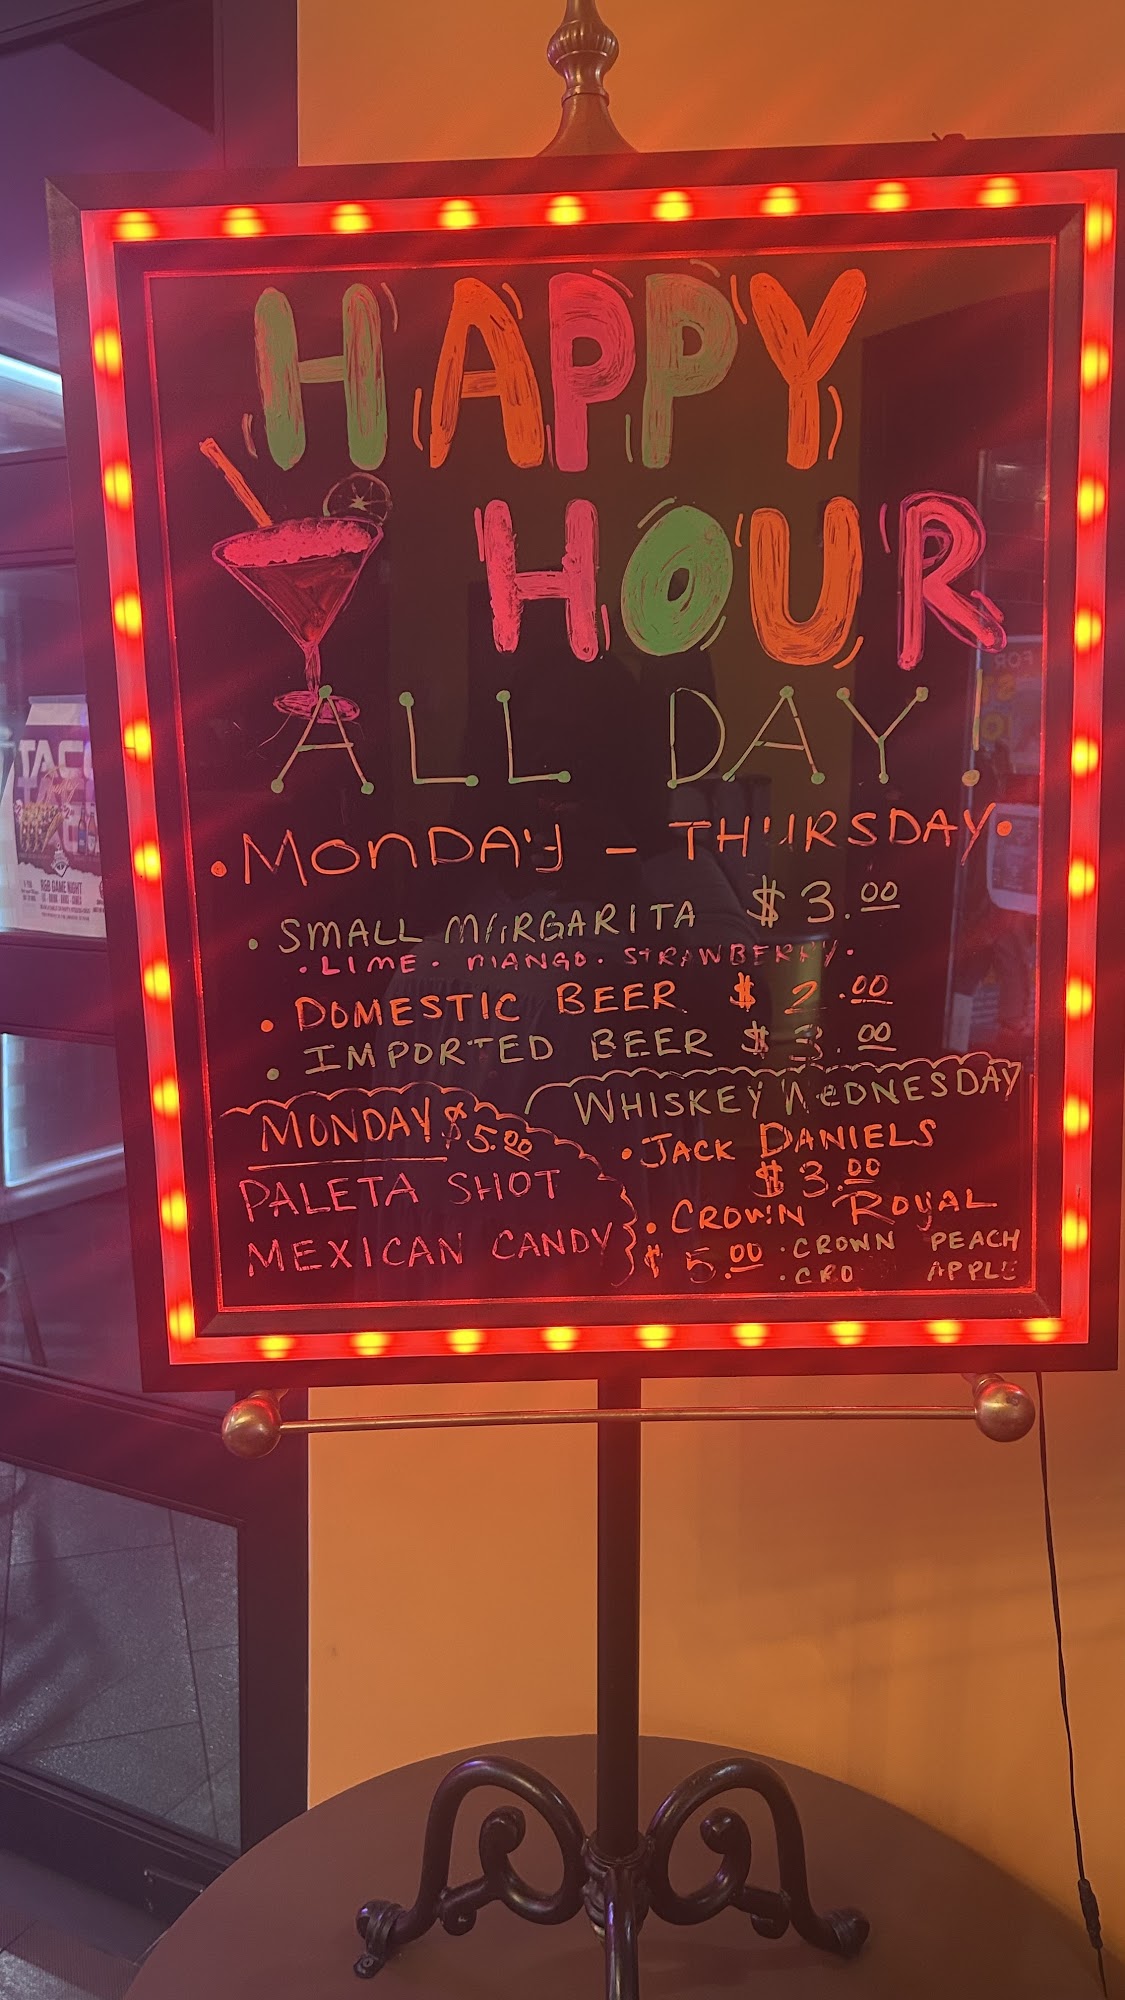 HAPPY
HOUR
ALL DAY!
• MONDAY - THURSDAY •
• SMALL MARGARITA $3.00
• LIME • MANGO • STRAWBERRY •
• DOMESTIC BEER $2.00
• IMPORTED BEER $3.00
MONDAY $5.00
PALETA SHOT
MEXICAN CANDY
WHISKEY WEDNESDAY
• JACK DANIELS
$3.00
• CROWN ROYAL
$5.00 • CROWN PEACH
• CRO APPLE
TACO
R&B GAME NIGHT
FOR